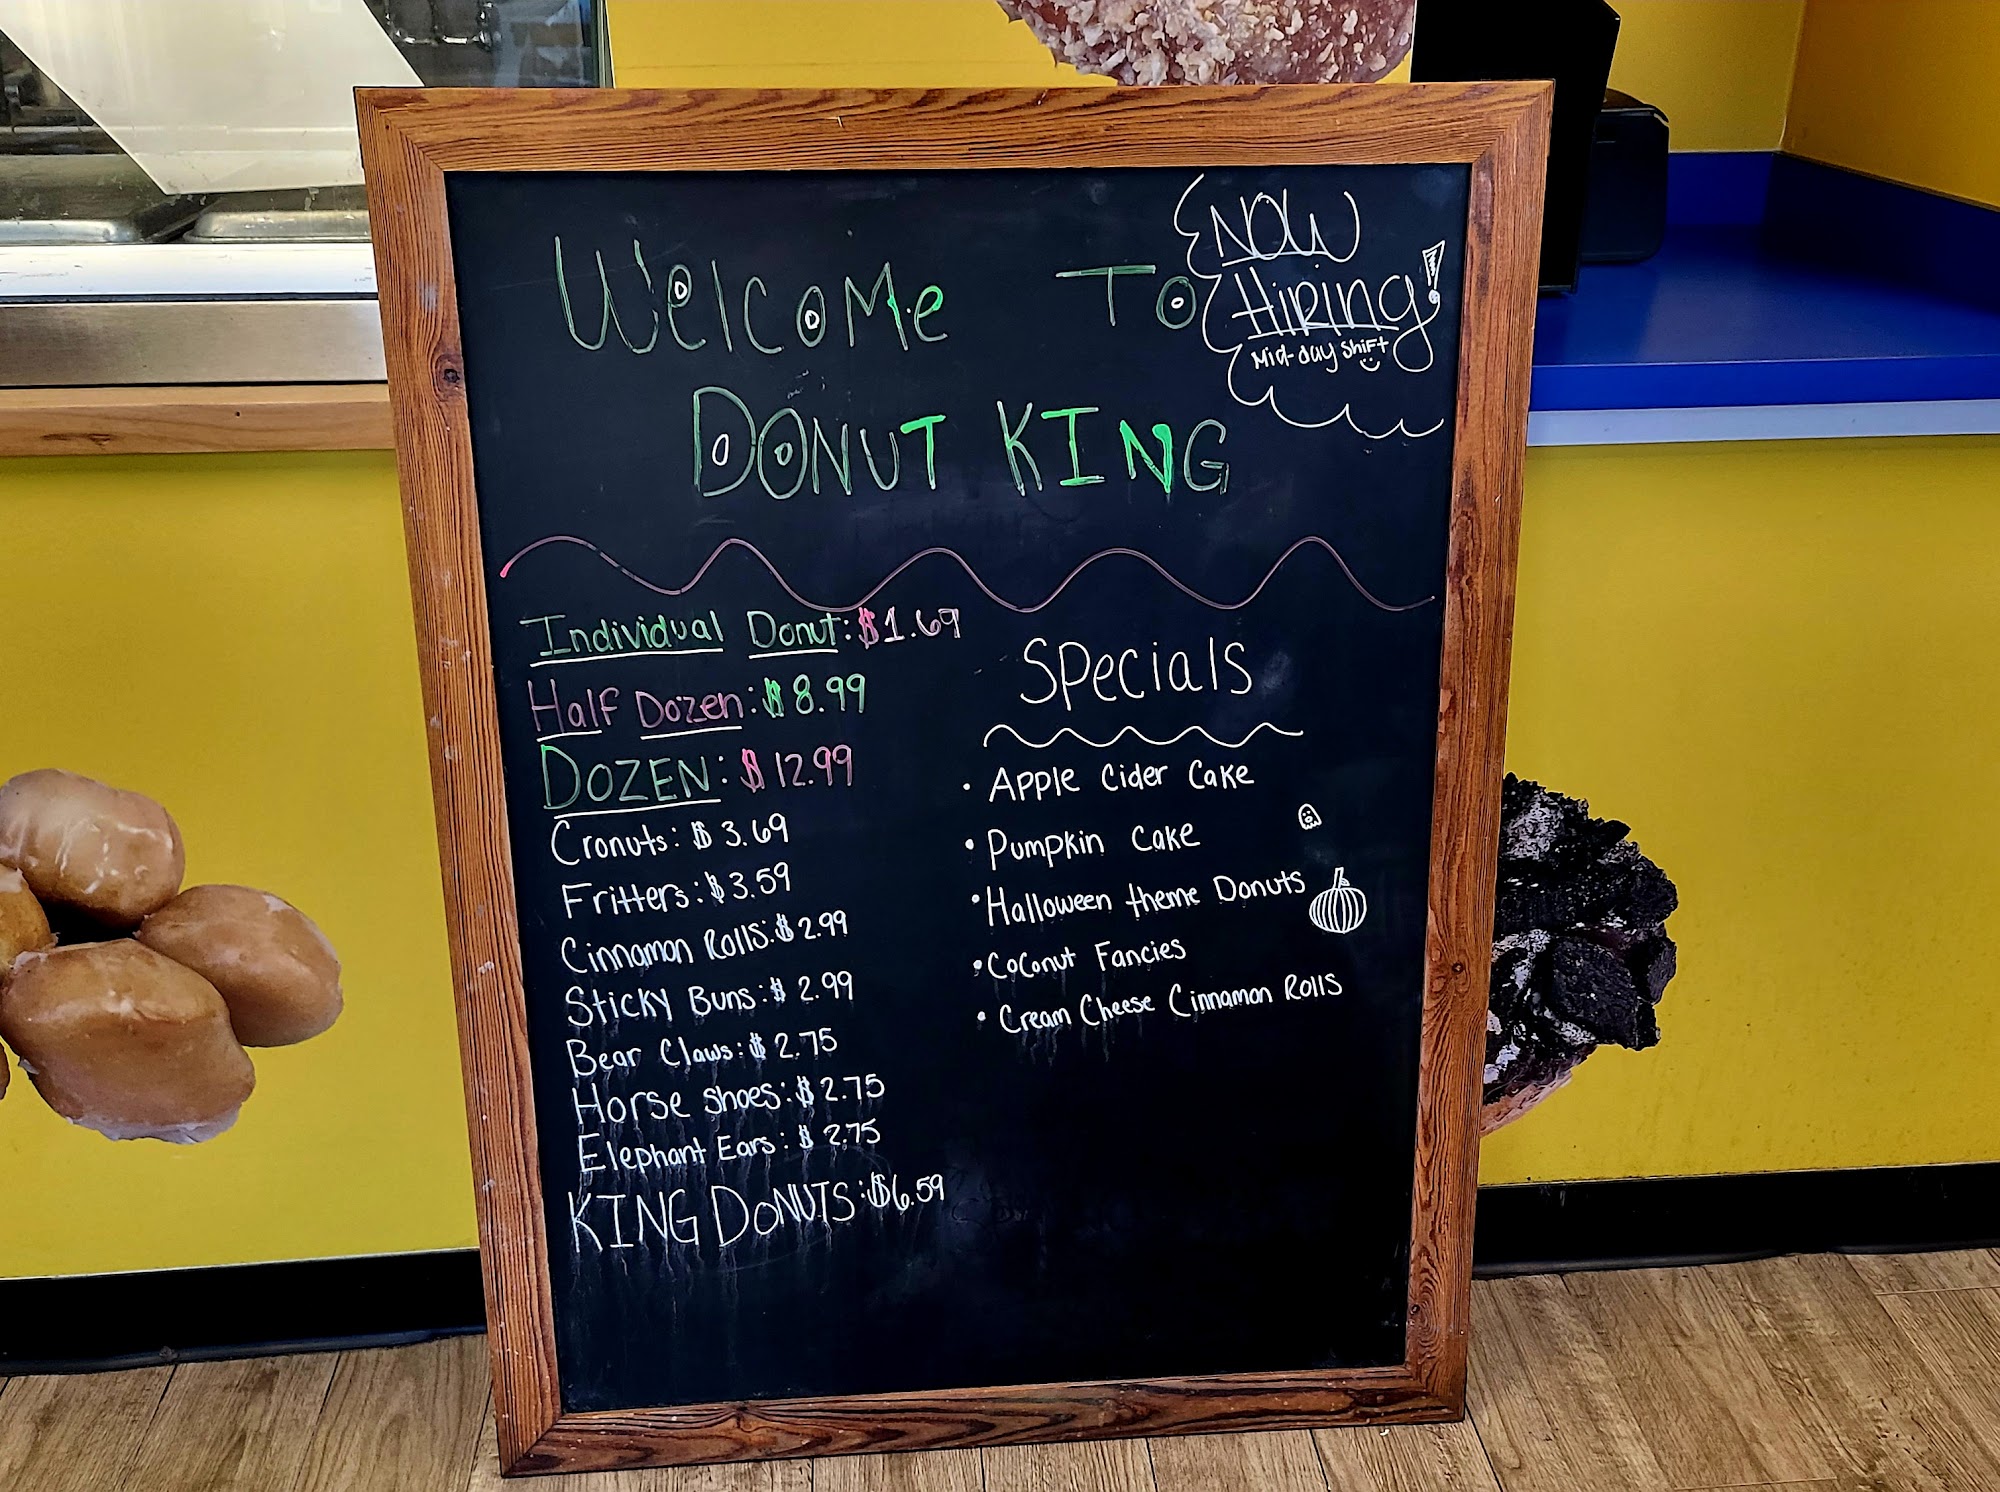 Welcome To
DONUT KING
NOW
HiRiNg!
Mid-day shift
Individual Donut: $1.69
Half Dozen: $8.99
DOZEN: $12.99
Cronuts: $3.69
Fritters: $3.59
Cinnamon Rolls: $2.99
Sticky Buns: $2.99
Bear Claws: $2.75
Horse shoes: $2.75
Elephant Ears: $2.75
KING DONUTS: $6.59
Specials
• Apple Cider Cake
• Pumpkin Cake
• Halloween theme Donuts
• Coconut Fancies
• Cream Cheese Cinnamon Rolls